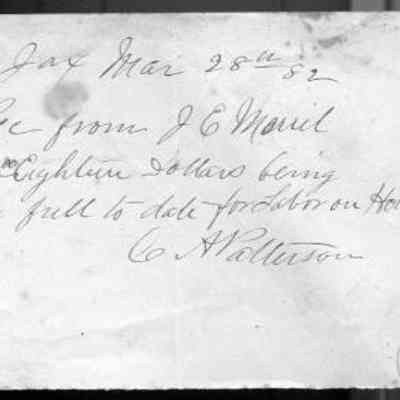 Jax Mar 28th 82
Rec from J E Merril
Eightene Dollars being
full to date for Labor on
C A Patterson